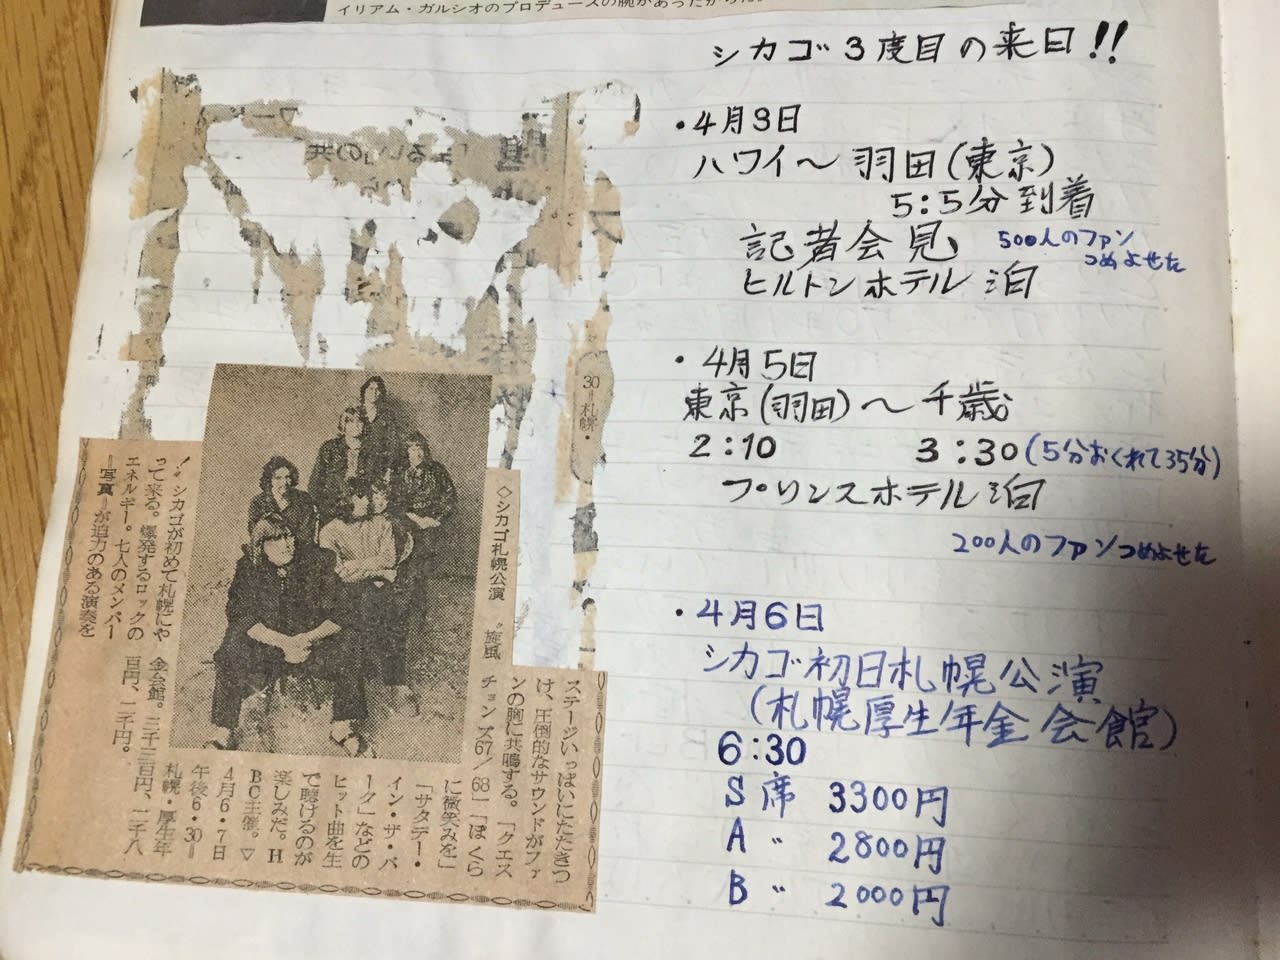 イリアム・ガルシオのプロデュースの腕があったから
シカゴ3度目の来日!!
・4月3日
ハワイ〜羽田(東京)
5:5分到着
記者会見
500人のファン
つめよせた
ヒルトンホテル泊
・4月5日
東京(羽田)〜千歳
2:10 3:30(5分おくれて35分)
プリンスホテル泊
200人のファンつめよせた
・4月6日
シカゴ初日札幌公演
(札幌厚生年金会館)
6:30
S席 3300円
A 〃 2800円
B 〃 2000円
30＝札幌・
◇シカゴ札幌公演 〝旋風
！シカゴが初めて札幌にや
って来る。爆発するロックの
エネルギー。七人のメンバー
＝写真＝が迫力のある演奏を
ステージいっぱいにたたきつ
け、圧倒的なサウンドがファ
ンの胸に共鳴する。「クエス
チョンズ67／68」「ぼくら
に微笑みを」「サタデー・
イン・ザ・パ
ーク」などの
ヒット曲を生
で聴けるのが
楽しみだ。H
BC主催。▽
4月6・7日
午後6・30＝
札幌・厚生年
金会館。三千三百円、二千八
百円、二千円。